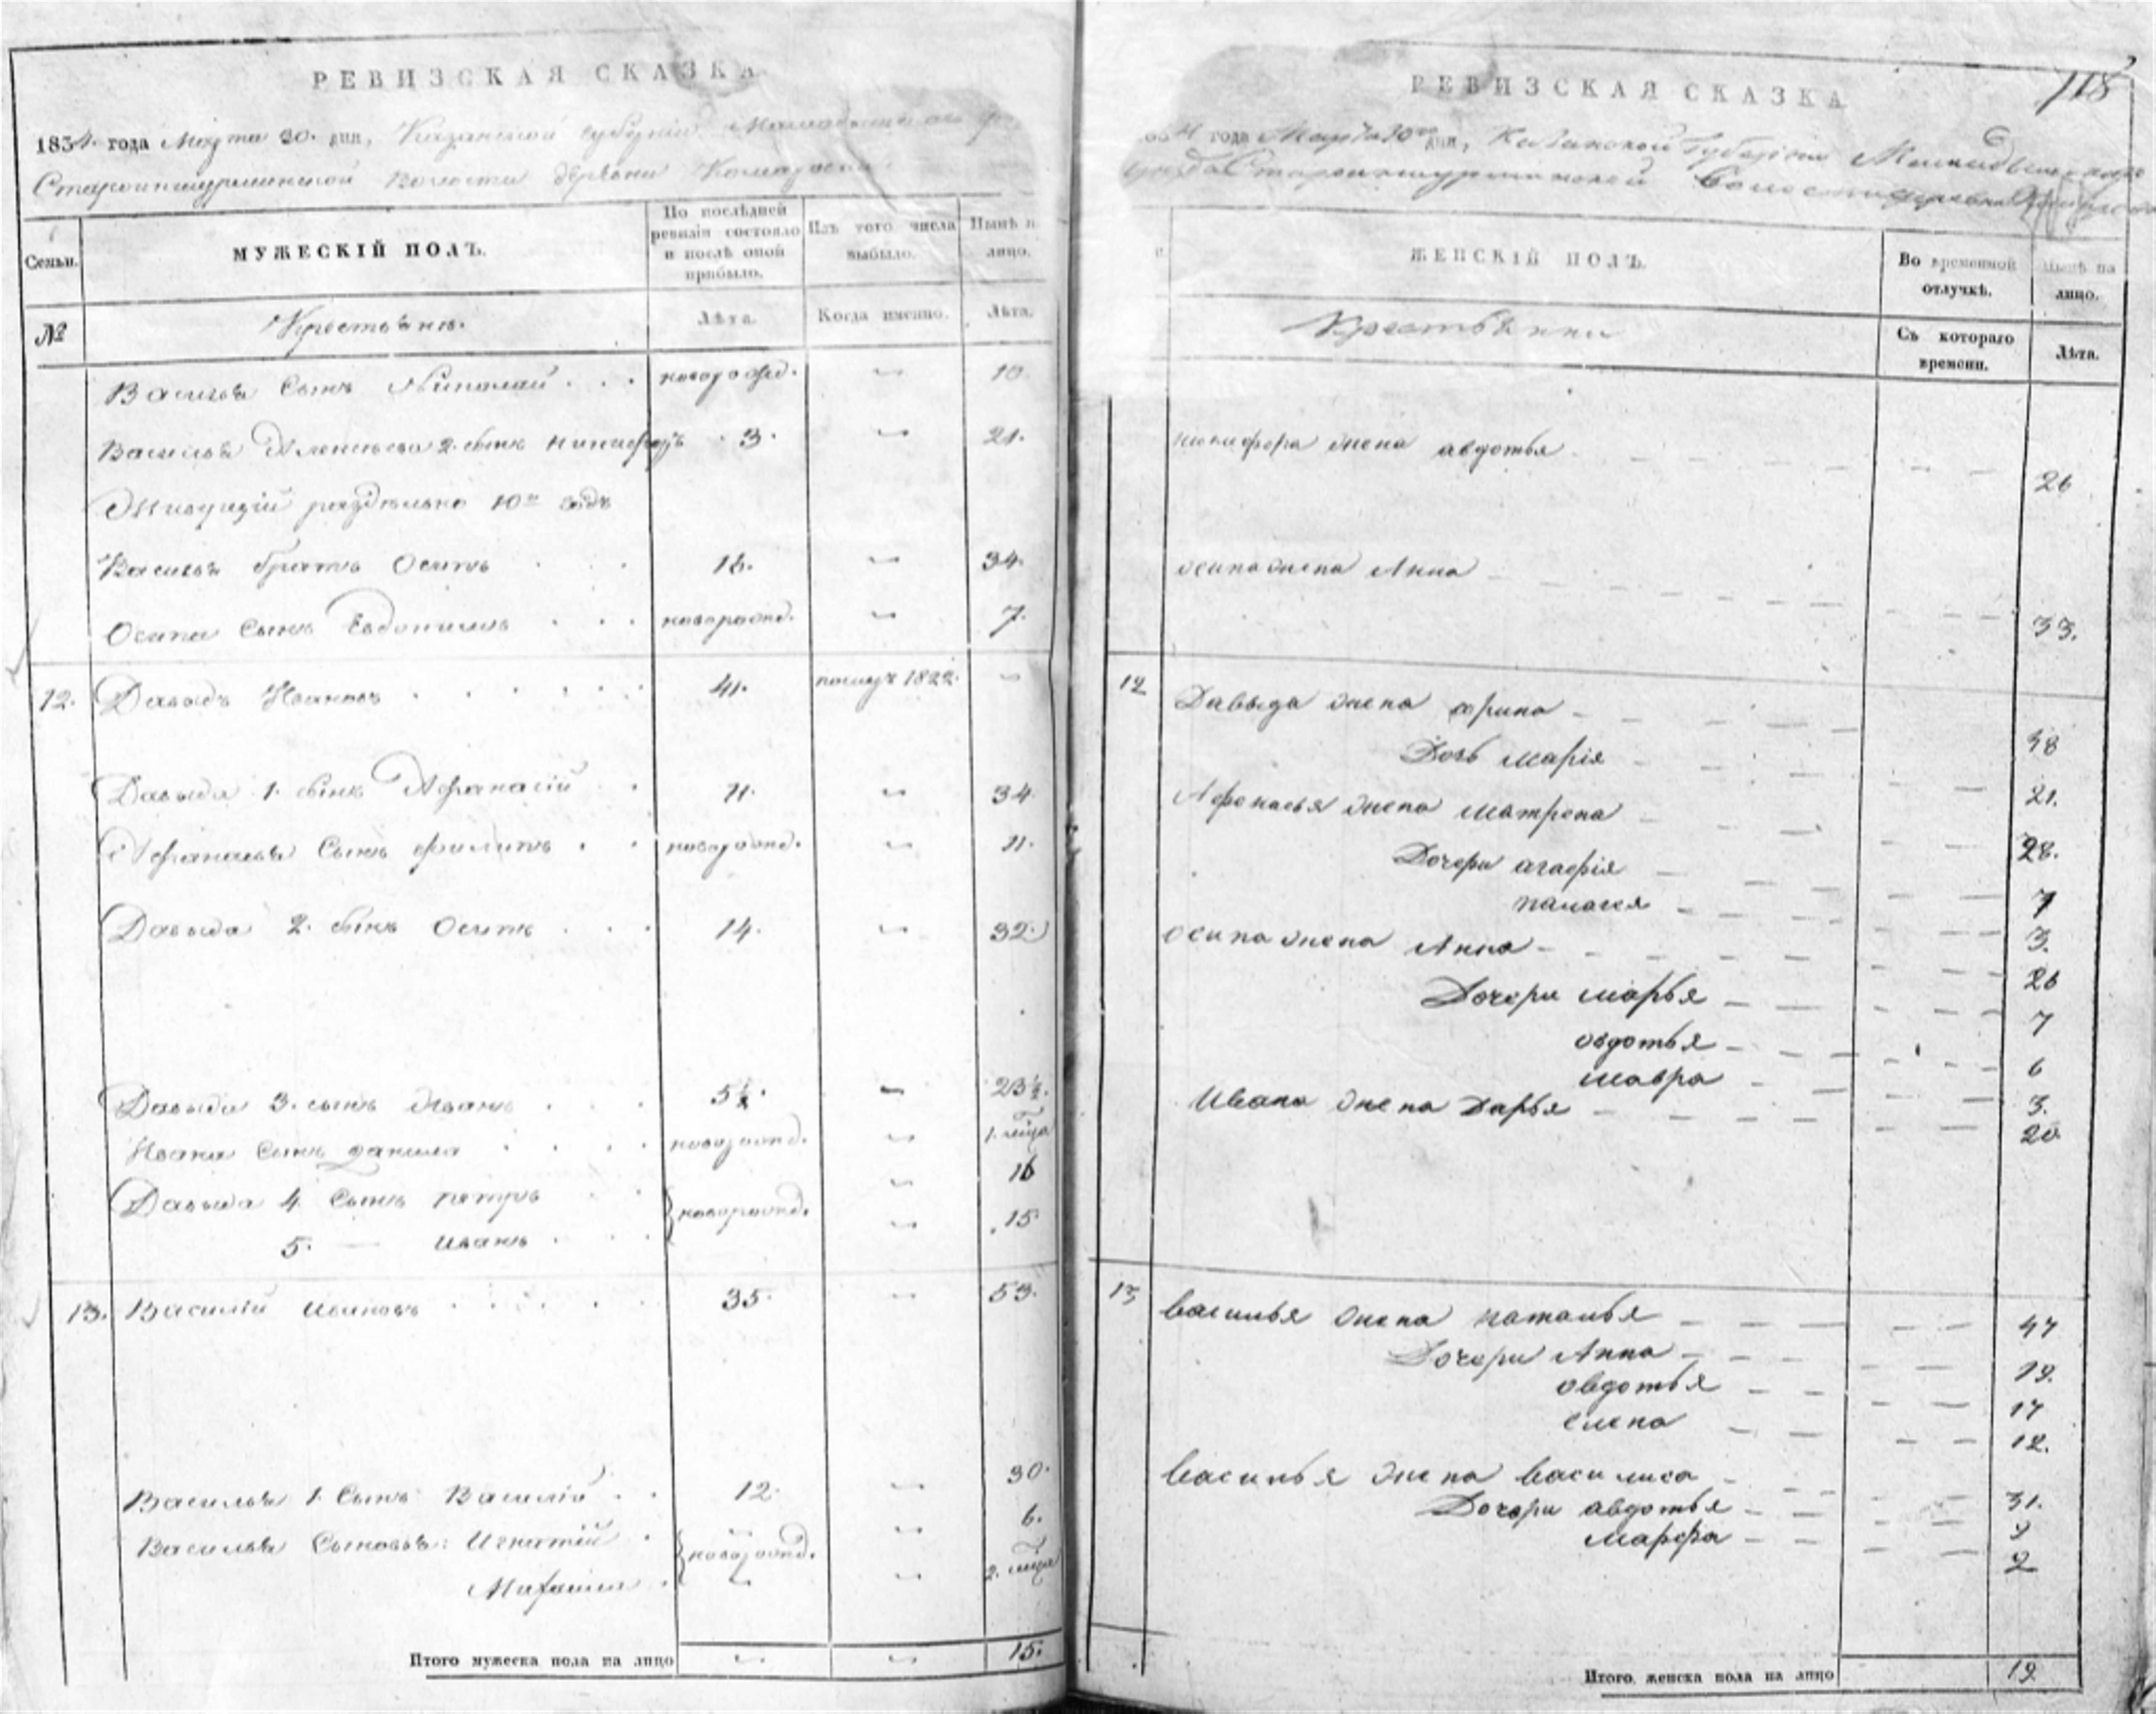 РЕВИЗСКАЯ СКАЗКА
1834 года Марта 30. дня, Казанской губернии
Староиншурминской Волости деревни
Семьи.
МУЖЕСКІЙ ПОЛЪ.
По послѣдней ревизіи состояло и послѣ оной прибыло.
Изъ того числа выбыло.
Нынѣ на лицо.
№
Крестьяне.
Лѣта.
Когда именно.
Лѣта.
Василья Сынъ Николай новорожд. 10.
Василья 2. сынъ Никифоръ 3. 21.
Живущій раздѣльно 10й годъ
Василья братъ Осипъ 16. 34.
Осипа Сынъ Евдокимъ новорожд. 7.
12. Давыдъ Ивановъ 41. 1822.
Давыда 1. сынъ Афанасій 34.
Афанасья Сынъ Филипъ новорожд. 11.
Давыда 2. сынъ Осипъ 14. 32.
Давыда 3. сынъ Иванъ 5½. 23½.
Ивана Сынъ Данила новорожд.
Давыда 4. Сынъ Петръ новорожд. 16
5. — Иванъ 15
13. Василій Ивановъ 35. 53.
Василья 1. Сынъ Василій 12. 30.
Василья Сыновья: Игнатій новорожд. 6.
Михаила
Итого мужеска пола на лицо 15.
118
РЕВИЗСКАЯ СКАЗКА
года Марта 30го дня, Казанской Губерніи
уѣзда Староиншурминской Волости деревни
ЖЕНСКІЙ ПОЛЪ.
Во временной отлучкѣ.
Нынѣ на лицо.
Крестьянки
Съ котораго времени.
Лѣта.
Никифора жена авдотья 26
осипа жена Анна 33.
12 Давыда жена орина 58
Дочь марія 21.
Афонасья жена матрена 28.
Дочери агафія 7
палагея 3.
осипа жена Анна 26
Дочери марья 7
овдотья 6
мавра 3.
Ивана жена Дарья 20
13 василья жена наталья 47
Дочери Анна 19.
овдотья 17
елена 12.
василья жена василиса 31.
Дочери авдотья 9
марфа 2
Итого женска пола на лицо 19